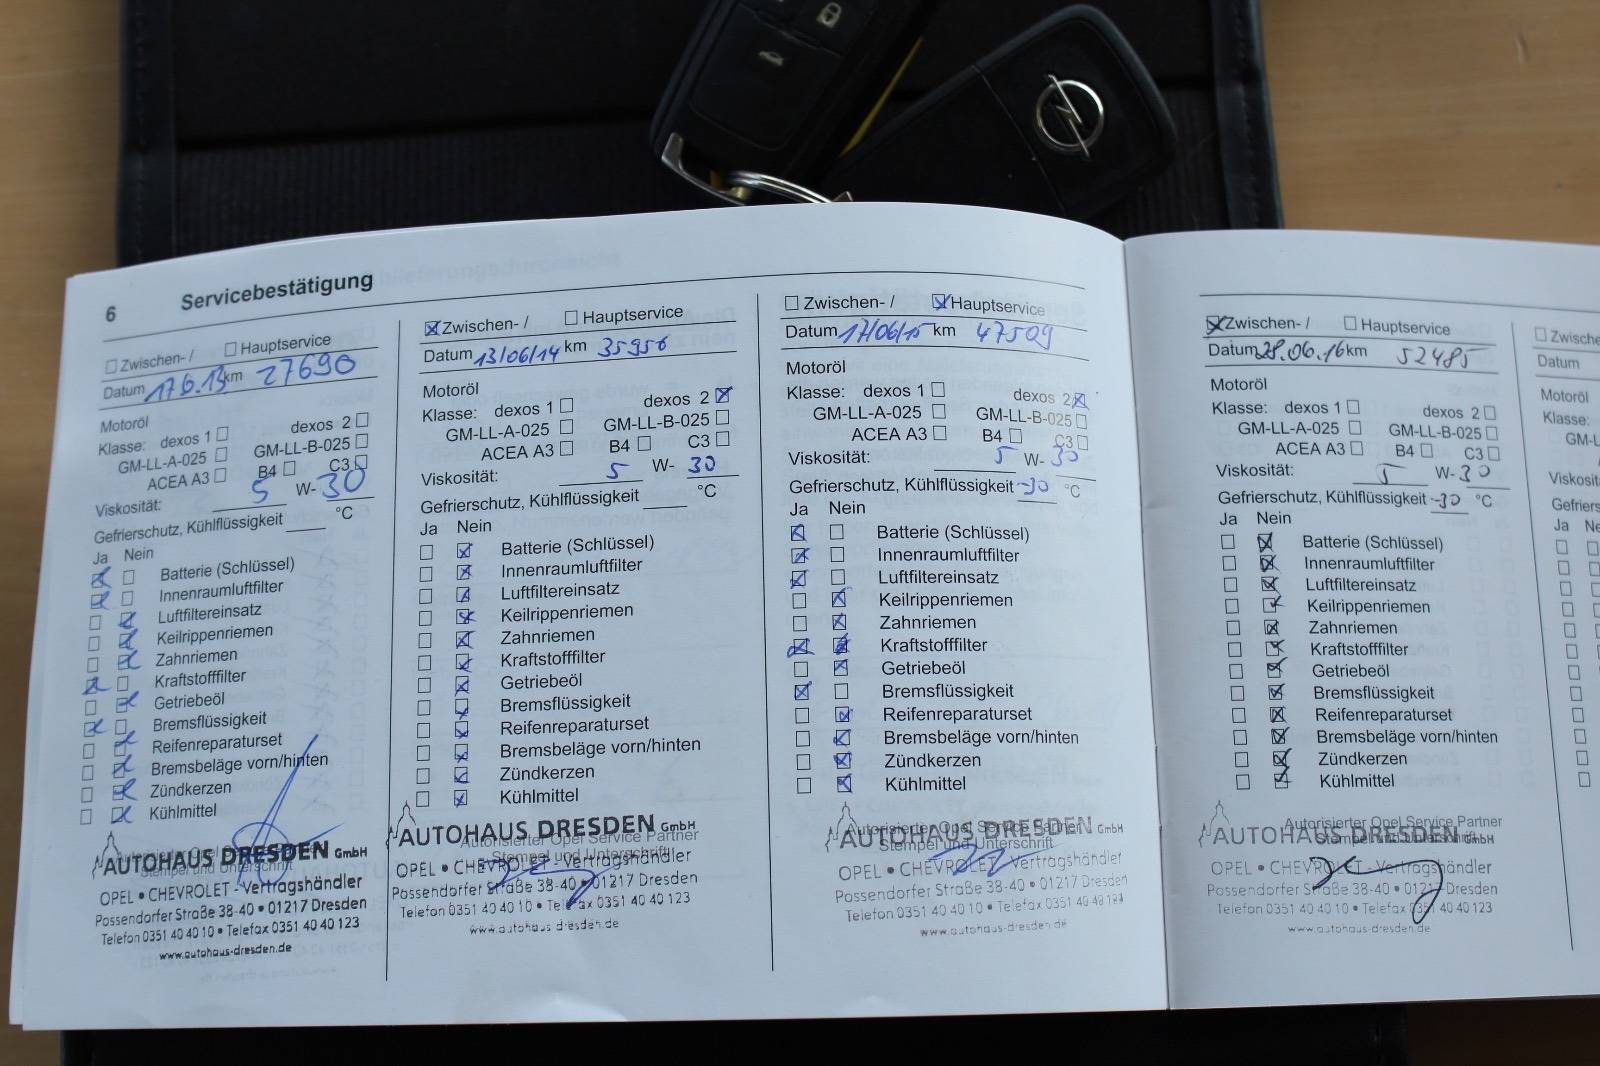 6 Servicebestätigung
Zwischen- / Hauptservice
Datum 17.6.13 km 27690
Motoröl
Klasse: dexos 1 dexos 2
GM-LL-A-025 GM-LL-B-025
ACEA A3 B4 C3
Viskosität: 5 W- 30
Gefrierschutz, Kühlflüssigkeit °C
Ja Nein
Batterie (Schlüssel)
Innenraumluftfilter
Luftfiltereinsatz
Keilrippenriemen
Zahnriemen
Kraftstofffilter
Getriebeöl
Bremsflüssigkeit
Reifenreparaturset
Bremsbeläge vorn/hinten
Zündkerzen
Kühlmittel
Autorisierter Opel Service Partner
Stempel und Unterschrift
AUTOHAUS DRESDEN GmbH
OPEL • CHEVROLET - Vertragshändler
Possendorfer Straße 38-40 • 01217 Dresden
Telefon 0351 40 40 10 • Telefax 0351 40 40 123
www.autohaus-dresden.de
Zwischen- / Hauptservice
Datum 13/06/14 km 35956
Motoröl
Klasse: dexos 1 dexos 2
GM-LL-A-025 GM-LL-B-025
ACEA A3 B4 C3
Viskosität: 5 W- 30
Gefrierschutz, Kühlflüssigkeit °C
Ja Nein
Batterie (Schlüssel)
Innenraumluftfilter
Luftfiltereinsatz
Keilrippenriemen
Zahnriemen
Kraftstofffilter
Getriebeöl
Bremsflüssigkeit
Reifenreparaturset
Bremsbeläge vorn/hinten
Zündkerzen
Kühlmittel
Autorisierter Opel Service Partner
Stempel und Unterschrift
AUTOHAUS DRESDEN GmbH
OPEL • CHEVROLET - Vertragshändler
Possendorfer Straße 38-40 • 01217 Dresden
Telefon 0351 40 40 10 • Telefax 0351 40 40 123
www.autohaus-dresden.de
Zwischen- / Hauptservice
Datum 17/06/15 km 47509
Motoröl
Klasse: dexos 1 dexos 2
GM-LL-A-025 GM-LL-B-025
ACEA A3 B4 C3
Viskosität: 5 W- 30
Gefrierschutz, Kühlflüssigkeit -30 °C
Ja Nein
Batterie (Schlüssel)
Innenraumluftfilter
Luftfiltereinsatz
Keilrippenriemen
Zahnriemen
Kraftstofffilter
Getriebeöl
Bremsflüssigkeit
Reifenreparaturset
Bremsbeläge vorn/hinten
Zündkerzen
Kühlmittel
Autorisierter Opel Service Partner
Stempel und Unterschrift
AUTOHAUS DRESDEN GmbH
OPEL • CHEVROLET - Vertragshändler
Possendorfer Straße 38-40 • 01217 Dresden
Telefon 0351 40 40 10 • Telefax 0351 40 40 123
www.autohaus-dresden.de
Zwischen- / Hauptservice
Datum 28.06.16 km 52485
Motoröl
Klasse: dexos 1 dexos 2
GM-LL-A-025 GM-LL-B-025
ACEA A3 B4 C3
Viskosität: 5 W- 30
Gefrierschutz, Kühlflüssigkeit -30 °C
Ja Nein
Batterie (Schlüssel)
Innenraumluftfilter
Luftfiltereinsatz
Keilrippenriemen
Zahnriemen
Kraftstofffilter
Getriebeöl
Bremsflüssigkeit
Reifenreparaturset
Bremsbeläge vorn/hinten
Zündkerzen
Kühlmittel
Autorisierter Opel Service Partner
Stempel und Unterschrift
AUTOHAUS DRESDEN GmbH
OPEL • CHEVROLET - Vertragshändler
Possendorfer Straße 38-40 • 01217 Dresden
Telefon 0351 40 40 10 • Telefax 0351 40 40 123
www.autohaus-dresden.de
Zwische
Datum
Motoröl
Klasse:
GM-L
Viskosit
Gefriers
Ja Ne